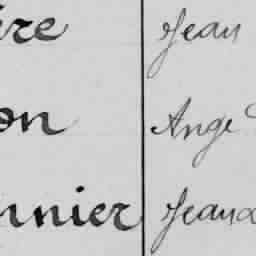 ère Jean
on Ange
nnier Jean